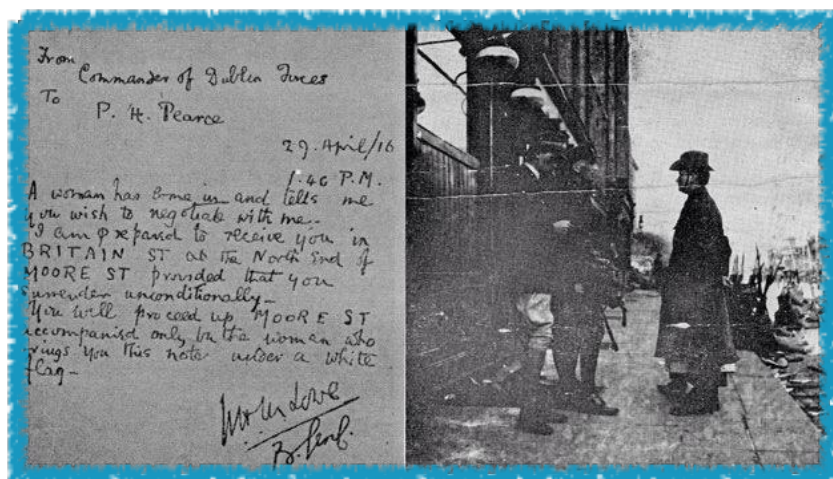 From
Commander of Dublin Forces
To
P. H. Pearce
29. April/16
1.40 P.M.
A woman has come in and tells me
you wish to negotiate with me.
I am prepared to receive you in
BRITAIN ST at the North End of
MOORE ST provided that you
surrender unconditionally_
You will proceed up MOORE ST
accompanied only by the woman who
brings you this note under a white
flag_
B. Genl.